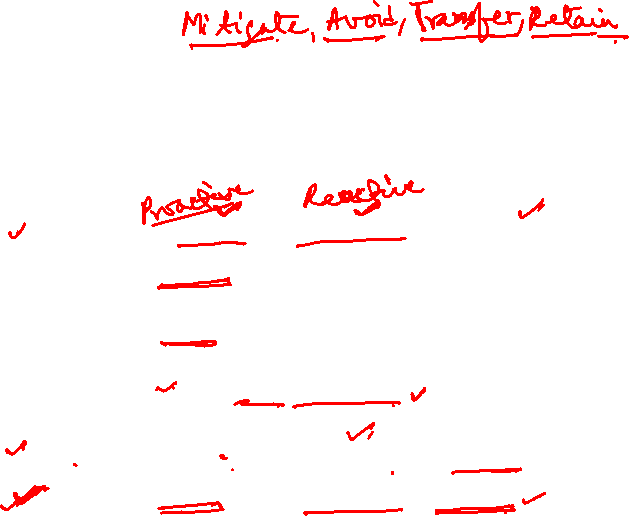 Mitigate, Avoid, Transfer, Retain
Proactive Reactive